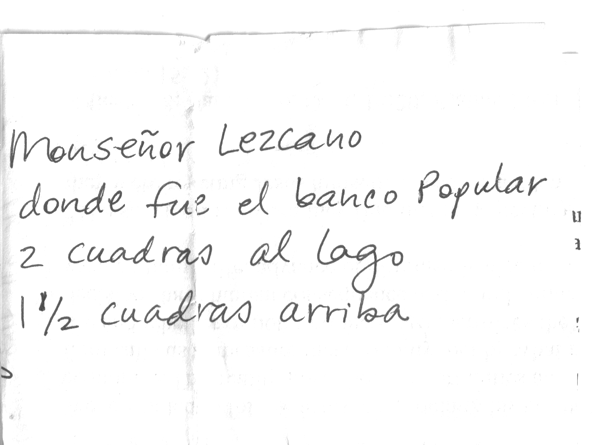 Monseñor Lezcano
donde fue el banco Popular
2 cuadras al lago
1 1/2 cuadras arriba